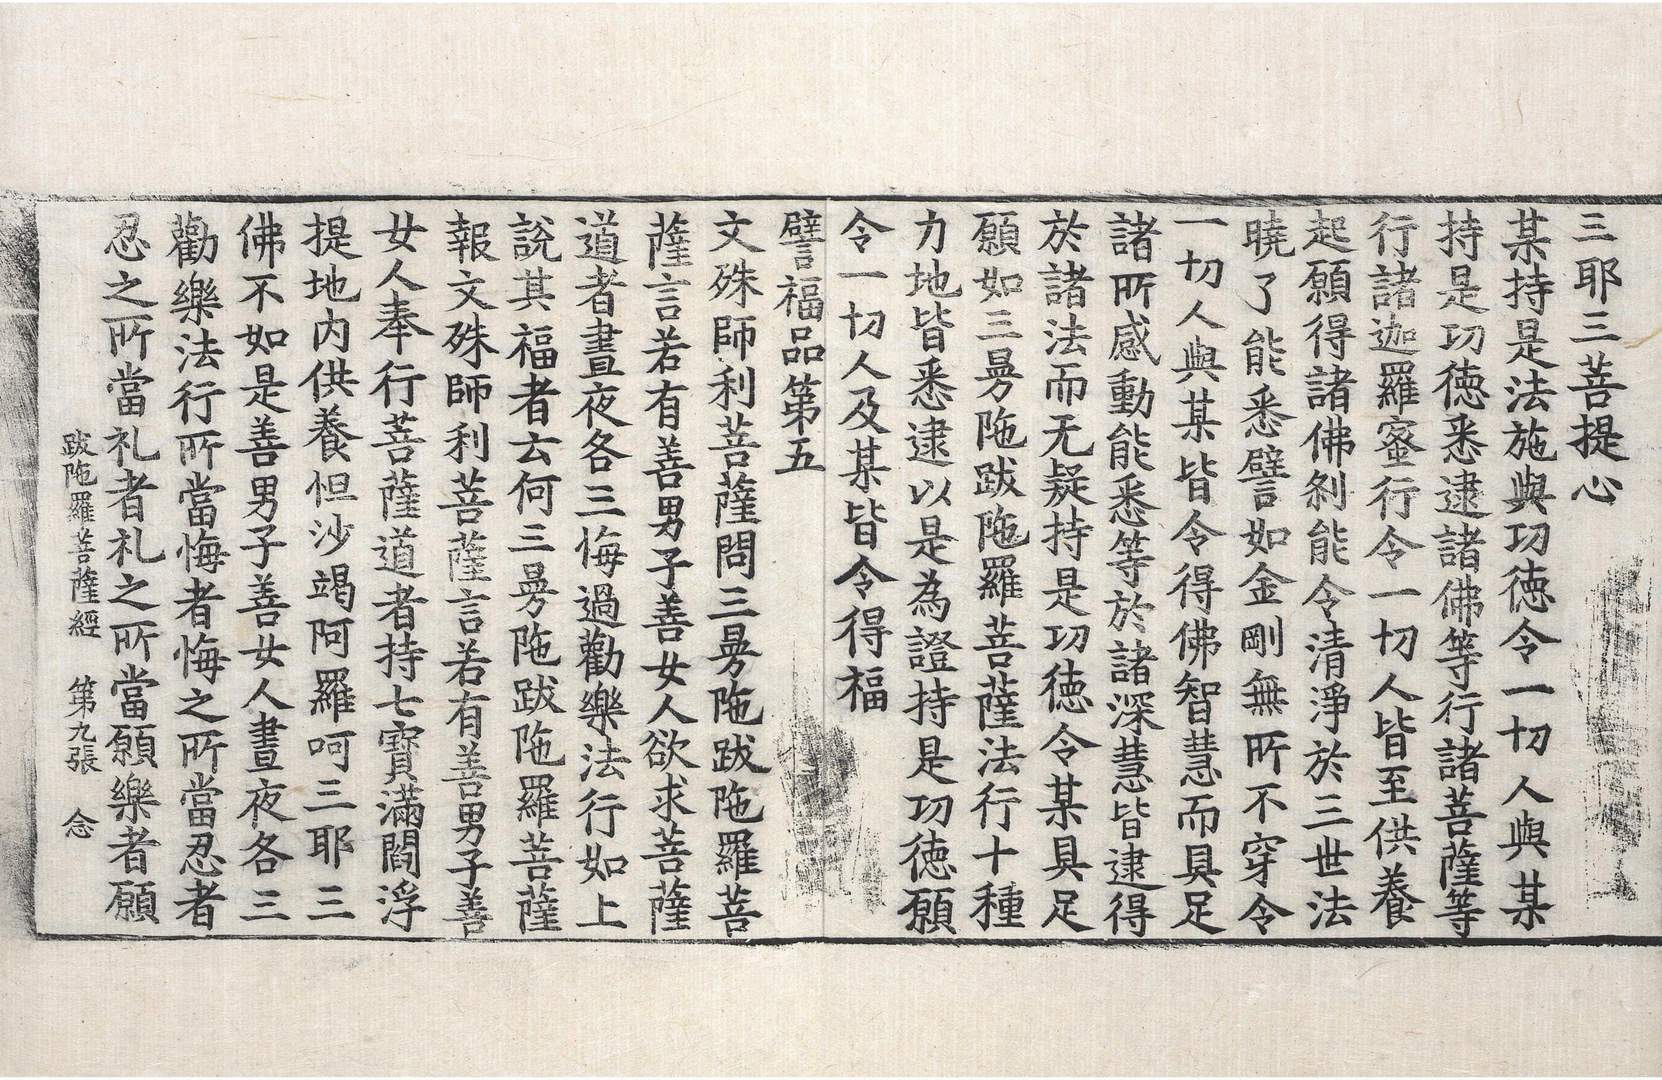 三耶三菩提心
某持是法施與功徳令一切人與某
持是功徳悉逮諸佛等行諸菩薩等
行諸迦羅蜜行令一切人皆至供養
起願得諸佛刹能令清淨於三世法
曉了能悉譬如金剛無所不穿令
一切人與某皆令得佛智慧而具足
諸所感動能悉等於諸深慧皆逮得
於諸法而无疑持是功徳令某具足
願如三曼陁跋陁羅菩薩法行十種
力地皆悉逮以是為證持是功徳願
令一切人及某皆令得福
譬福品第五
文殊師利菩薩問三曼陁跋陁羅菩
薩言若有善男子善女人欲求菩薩
道者晝夜各三悔過勸樂法行如上
說其福者云何三曼陁跋陁羅菩薩
報文殊師利菩薩言若有善男子善
女人奉行菩薩道者持七寶滿閻浮
提地内供養怛沙竭阿羅呵三耶三
佛不如是善男子善女人晝夜各三
勸樂法行所當悔者悔之所當忍者
忍之所當礼者礼之所當願樂者願
跋陁羅菩薩經 第九張 念